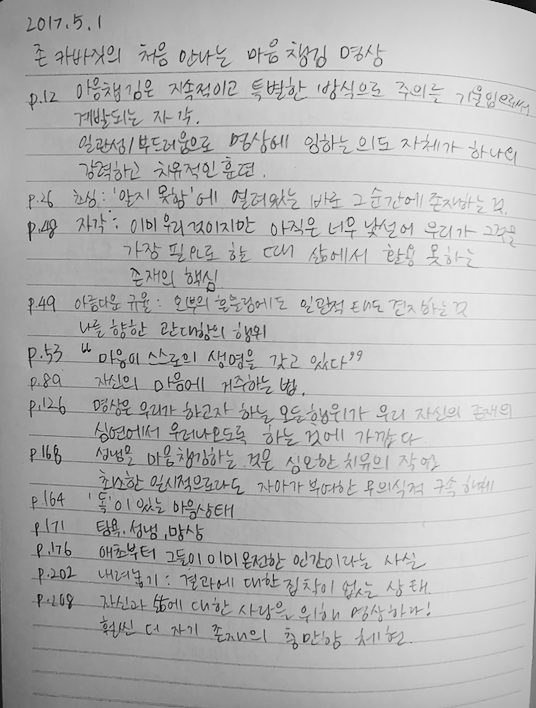 2017.5.1
존 카바진의 처음 만나는 마음챙김 명상
p.12 마음챙김은 지속적이고 특별한 방식으로 주의를 기울임으로써
계발되는 자각.
일관성/부드러움으로 명상에 임하는 의도 자체가 하나의
강력하고 치유적인 훈련.
p.26 초심: '알지 못함'에 열려있는 바로 그 순간에 존재하는 것.
p.48 자각: 이미 우리 것이지만 아직은 너무 낯설어 우리가 그것을
가장 필요로 하는 때 삶에서 활용 못하는
존재의 핵심
p.49 아름다운 규율: 외부의 흔들림에도 일관적 태도 견지하는 것
나를 향한 관대함의 행위
p.53 "마음이 스스로의 생명을 갖고 있다"
p.89 자신의 마음에 거주하는 법.
p.126 명상은 우리가 하고자 하는 모든 행위가 우리 자신의 존재의
심연에서 우러나오도록 하는 것에 가깝다
p168 성냄을 마음챙김하는 것은 심오한 치유의 작업
최소한 일시적으로라도 자아가 부여한 무의식적 구속 해체
p.164 '독'이 있는 마음상태
p.171 탐욕, 성냄, 망상
p.176 애초부터 그들이 이미 온전한 인간이라는 사실
p.202 내려놓기: 결과에 대한 집착이 없는 상태.
p.208 자신과 삶에 대한 사랑을 위해 명상하라!
훨씬 더 자기 존재의 충만함 체현.